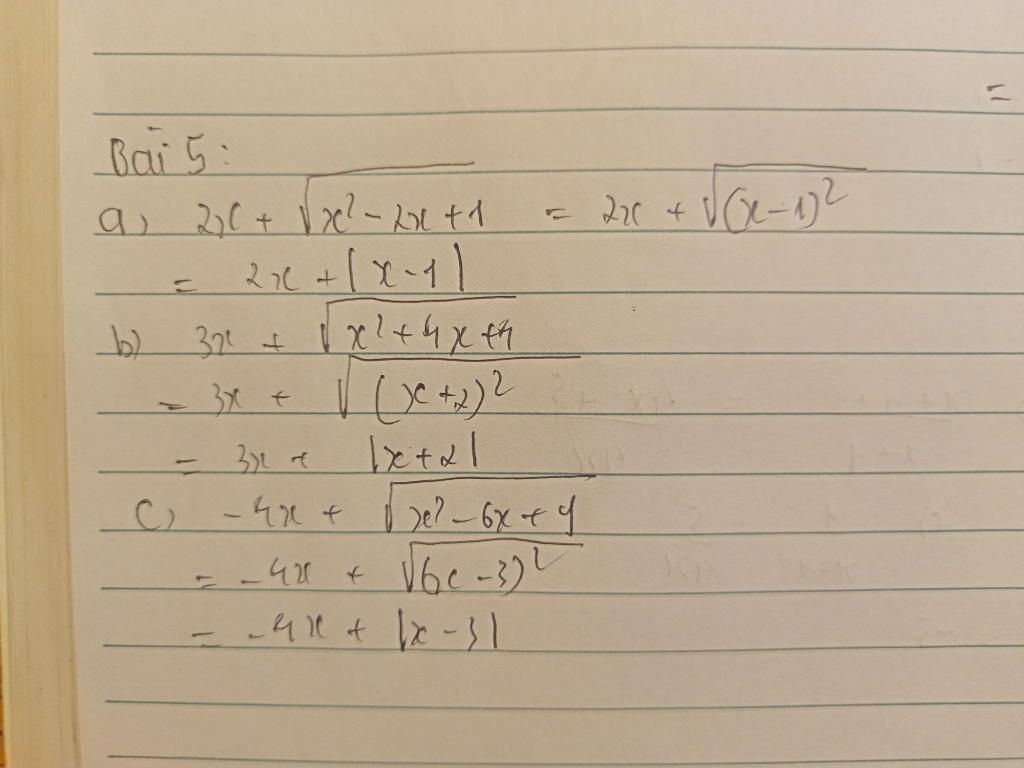 =
Bài 5:
a) 2x + √(x² - 2x + 1) = 2x + √((x - 1)²)
= 2x + |x - 1|
b) 3x + √(x² + 4x + 4)
= 3x + √((x + 2)²)
= 3x + |x + 2|
c) -4x + √(x² - 6x + 9)
= -4x + √((x - 3)²)
= -4x + |x - 3|